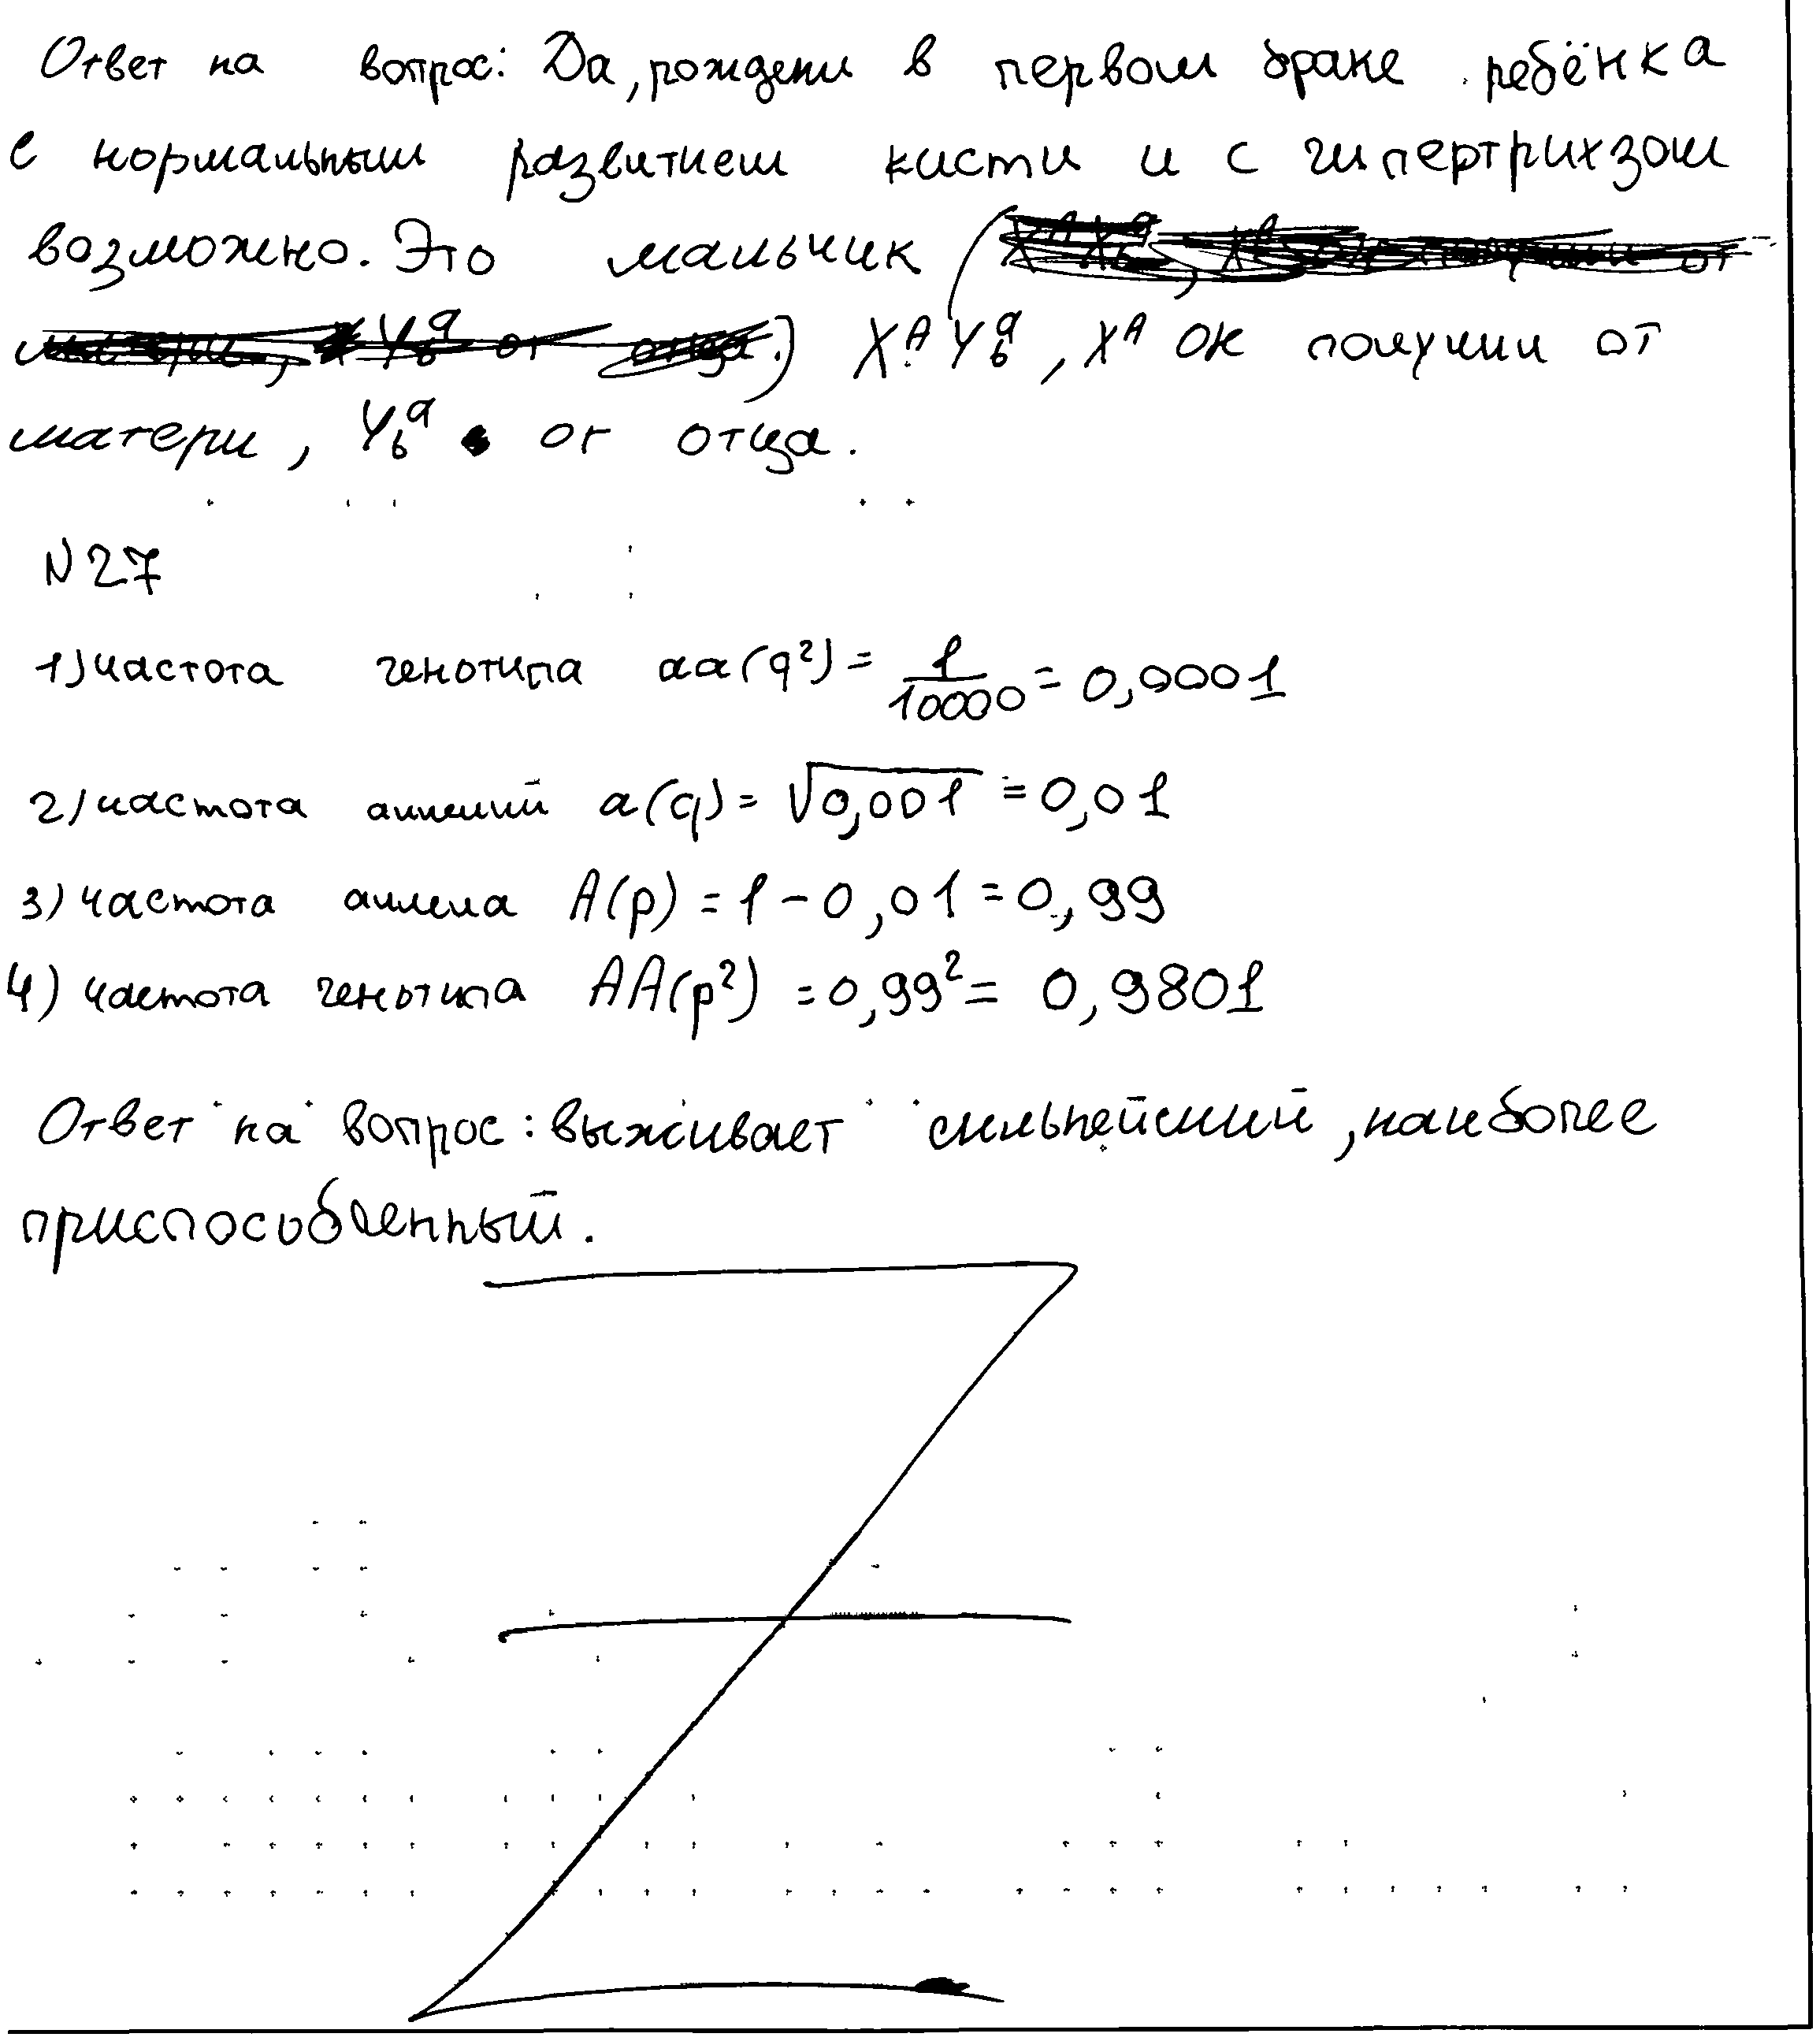 Ответ на вопрос: Да, рождени в первом браке ребёнка
с нормальным развитием кисти и с гипертрихзом
возможно. Это мальчик (
) XᴬY_bᵃ, Xᴬ он получил от
матери, Y_bᵃ от отца.
N27
1) частота генотипа aa(q²) = 1/10000 = 0,0001
2) частота аллелий a(q) = √0,001 = 0,01
3) частота аллела A(p) = 1 - 0,01 = 0,99
4) частота генотипа AA(p²) = 0,99² = 0,9801
Ответ на вопрос: выживает сильнейший, наиболее
приспособленный.